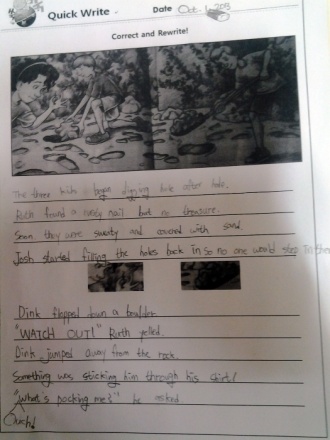 Quick Write
Date Oct. 1, 2013
Correct and Rewrite!
The three kids began digging hole after hole.
Ruth found a rusty nail but no treasure.
Soon they were sweaty and covered with sand.
Josh started filling the holes back in so no one would step in them
Dink flopped down a boulder.
"WATCH OUT!" Ruth yelled.
Dink jumped away from the rock.
Something was sticking him through his shirt!
"What's pocking me?" he asked
Ouch!